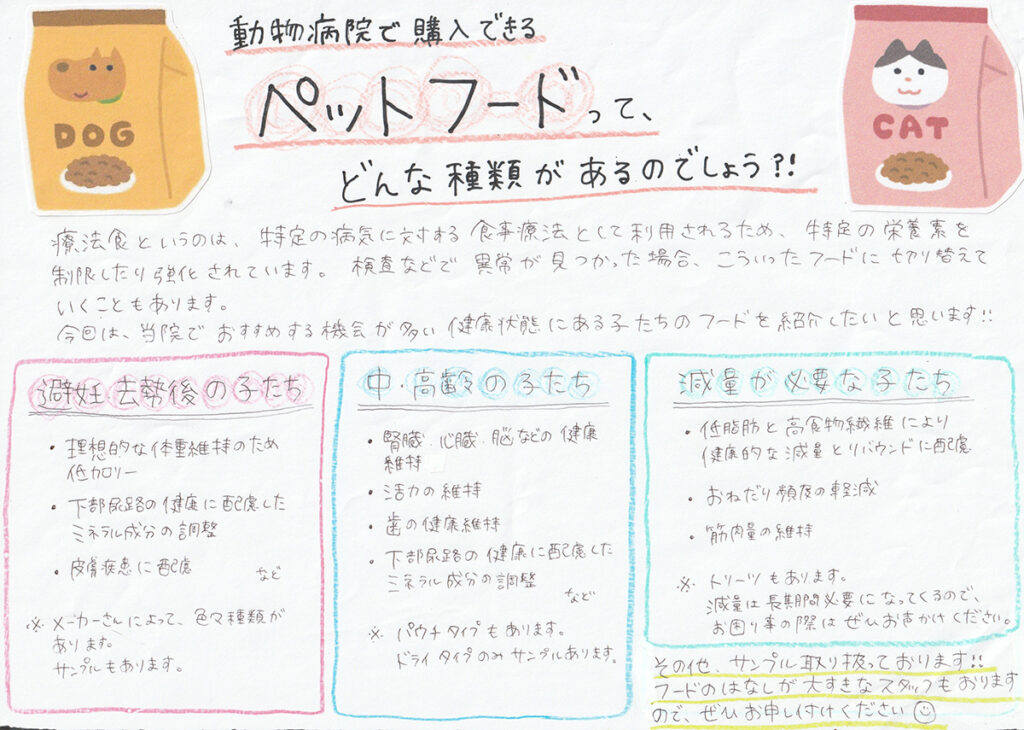 動物病院で購入できる
ペットフードって、
どんな種類があるのでしょう?!
DOG
CAT
療法食というのは、特定の病気に対する食事療法として利用されるため、特定の栄養素を
制限したり強化されています。検査などで異常が見つかった場合、こういったフードに切り替えて
いくこともあります。
今回は、当院でおすすめする機会が多い健康状態にある子たちのフードを紹介したいと思います!!
避妊去勢後の子たち
・理想的な体重維持のため
低カロリー
・下部尿路の健康に配慮した
ミネラル成分の調整
・皮膚疾患に配慮
など
※メーカーさんによって、色々種類が
あります。
サンプルもあります。
中・高齢の子たち
・腎臓・心臓・脳などの健康
維持
・活力の維持
・歯の健康維持
・下部尿路の健康に配慮した
ミネラル成分の調整
など
※パウチタイプもあります。
ドライタイプのみサンプルあります。
減量が必要な子たち
・低脂肪と高食物繊維により
健康的な減量とリバウンドに配慮
・おねだり頻度の軽減
・筋肉量の維持
※トリーツもあります。
減量は長期間必要になってくるので、
お困り事の際はぜひお声かけください。
その他、サンプル取り扱っております!!
フードのはなしが大すきなスタッフもおります
ので、ぜひお申し付けください